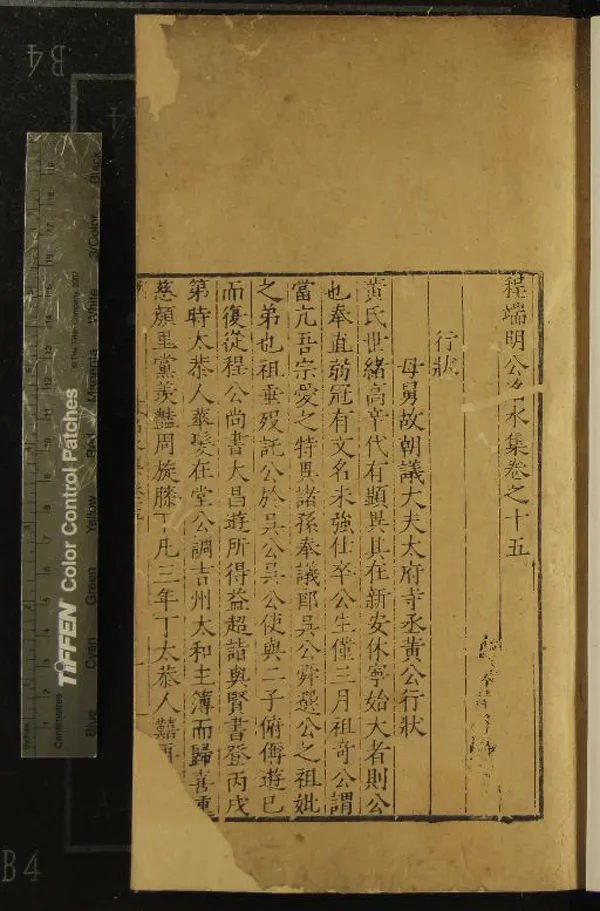 程端明公洺水集卷之十五
行狀
母舅故朝議大夫太府寺丞黃公行狀
黃氏世緒高辛代有顯異其在新安休寧始大者則公
也奉直蒻冠有文名未強仕卒公生僅三月祖奇公謂
當亢吾宗愛之特異諸孫奉議郎吳公舜選公之祖妣
之弟也祖垂歿託公於吳公吳公使與二子俯傅遊已
而復從程公尚書大昌遊所得益超詣與賢書登丙戌
第時太恭人華髮在堂公調吉州太和主簿而歸喜重
慈顏里黨羨豔周旋膝下凡三年丁太恭人囏
B4
B4
TIFFEN Color Control Patches
© The Tiffen Company, 2007
Centimetres
Inches
Blue
Cyan
Green
Yellow
Red
Magenta
White
3/Color
Black